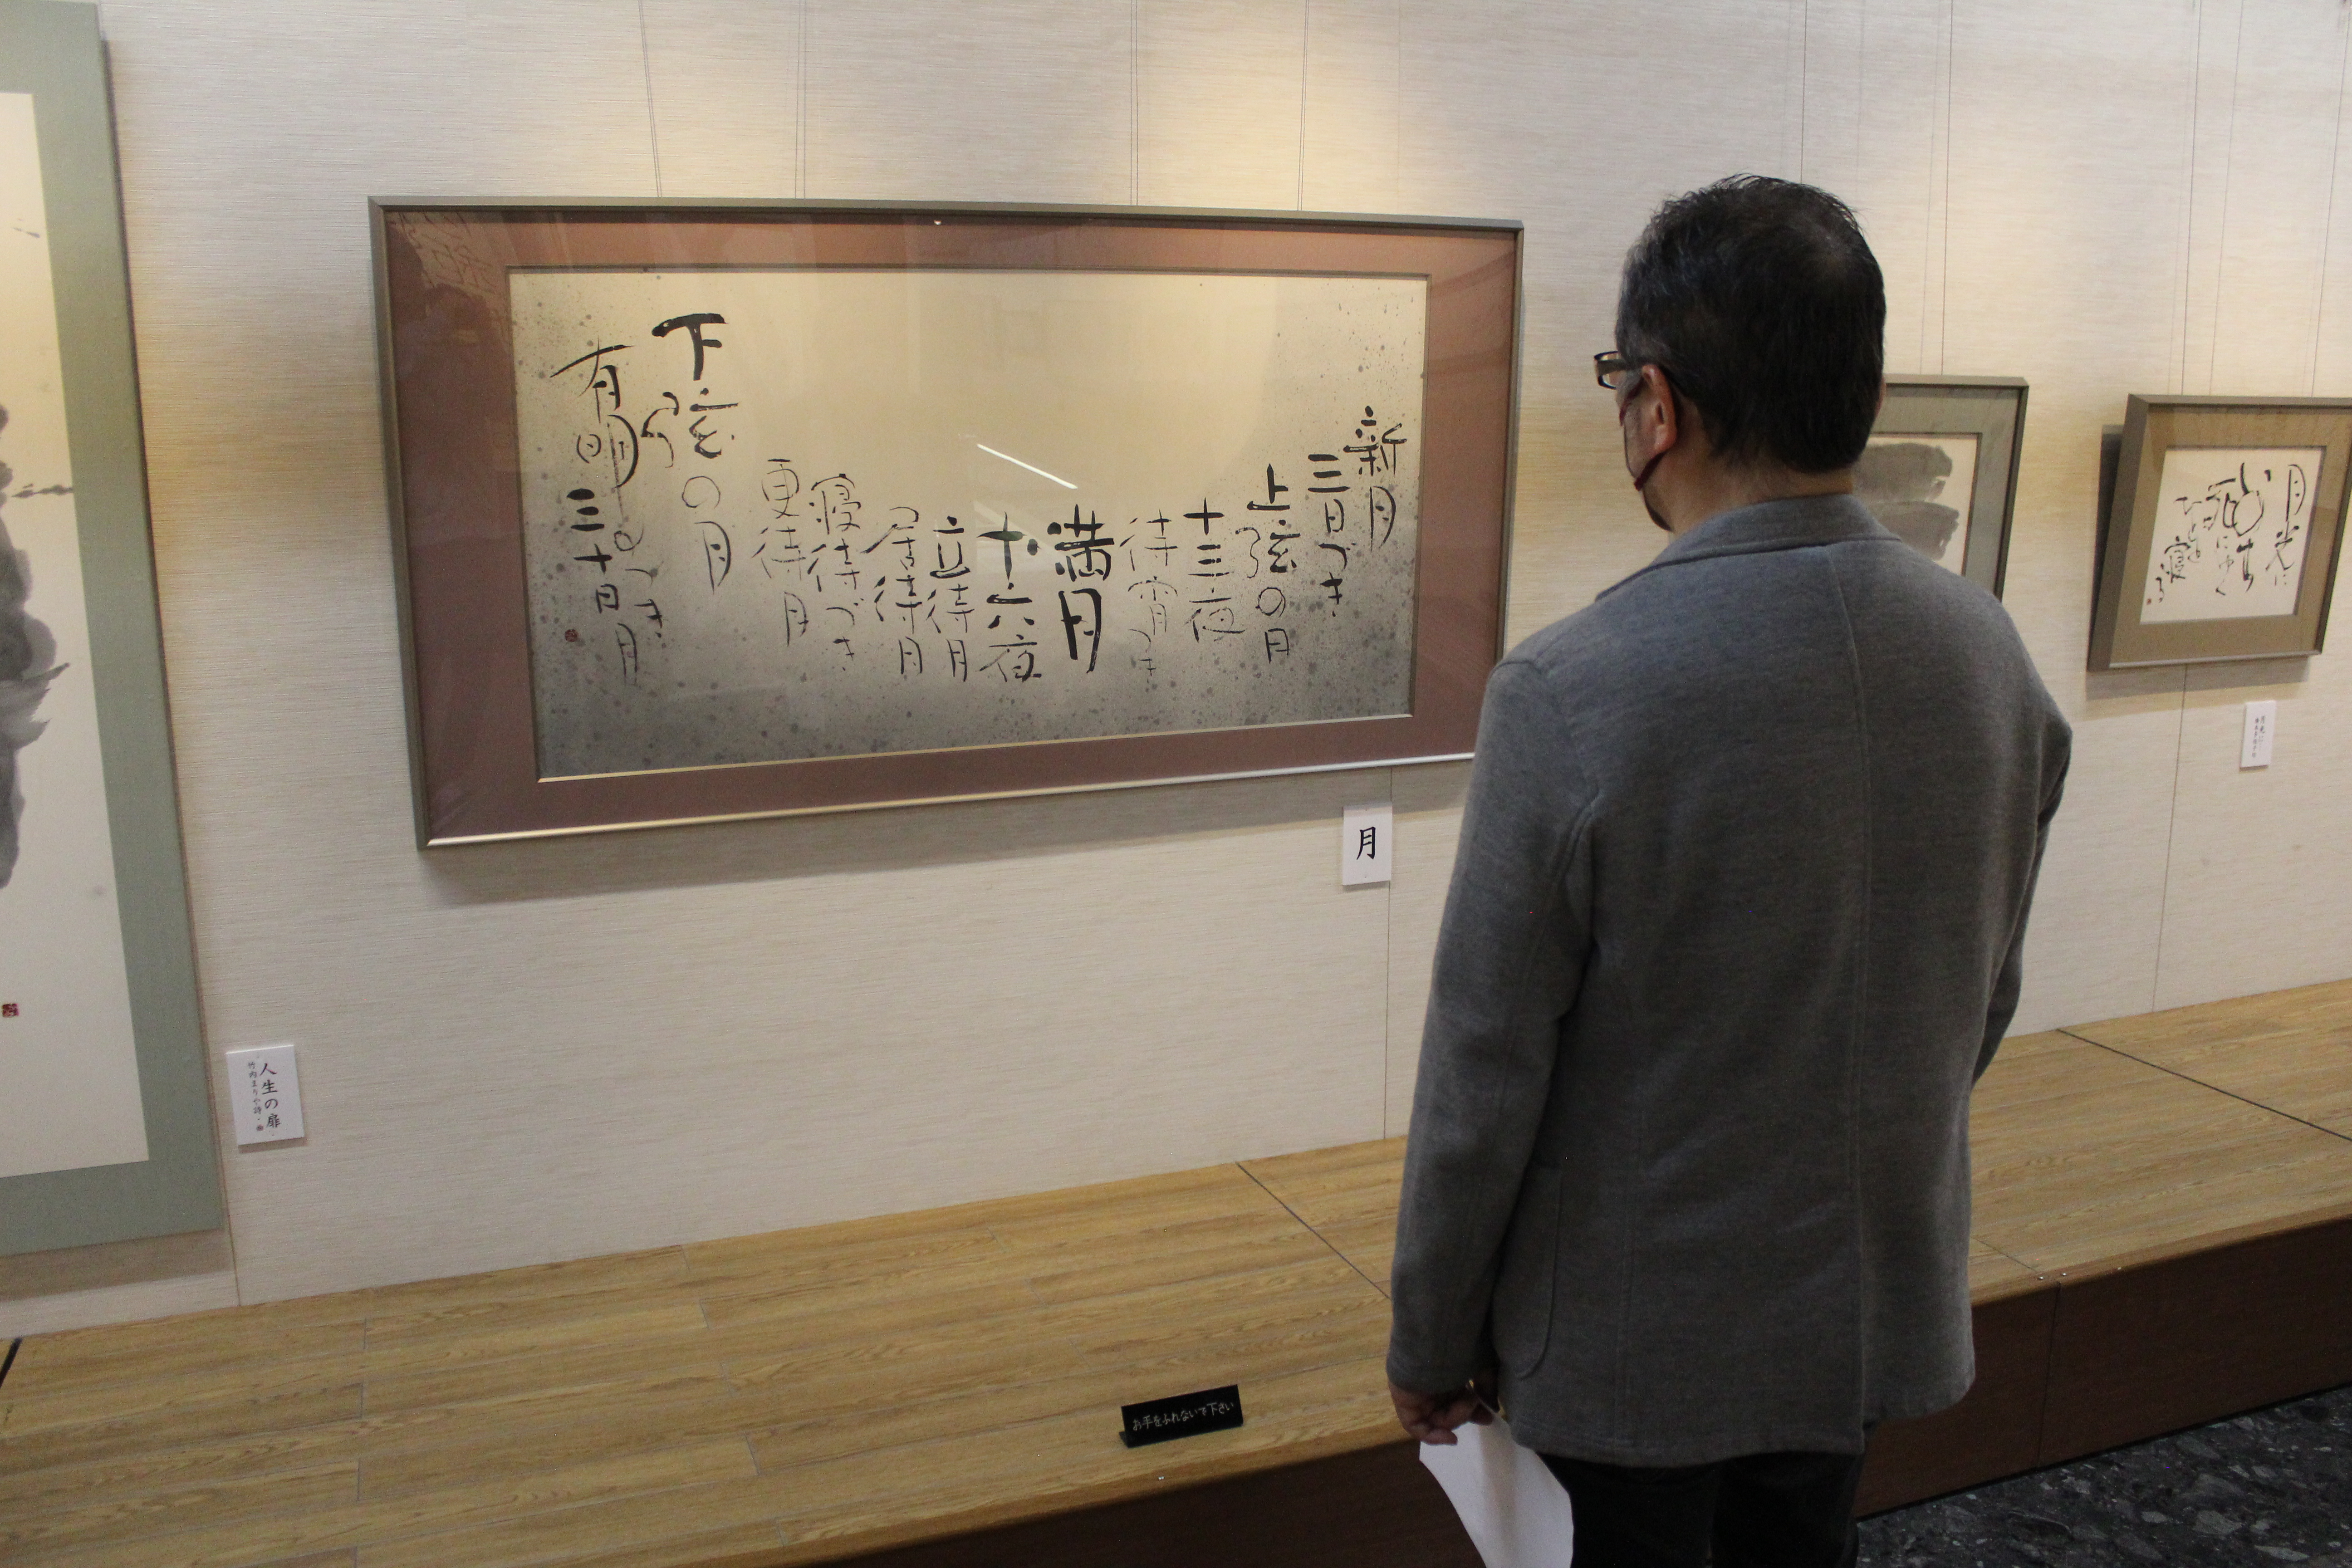 新月
三日づき
上弦の月
十三夜
待宵づき
満月
十六夜
立待月
居待月
寝待づき
更待月
下弦の月
有明のつき
三十日月
月
人生の扉
竹内まりや詩・曲
お手をふれないで下さい
月光に